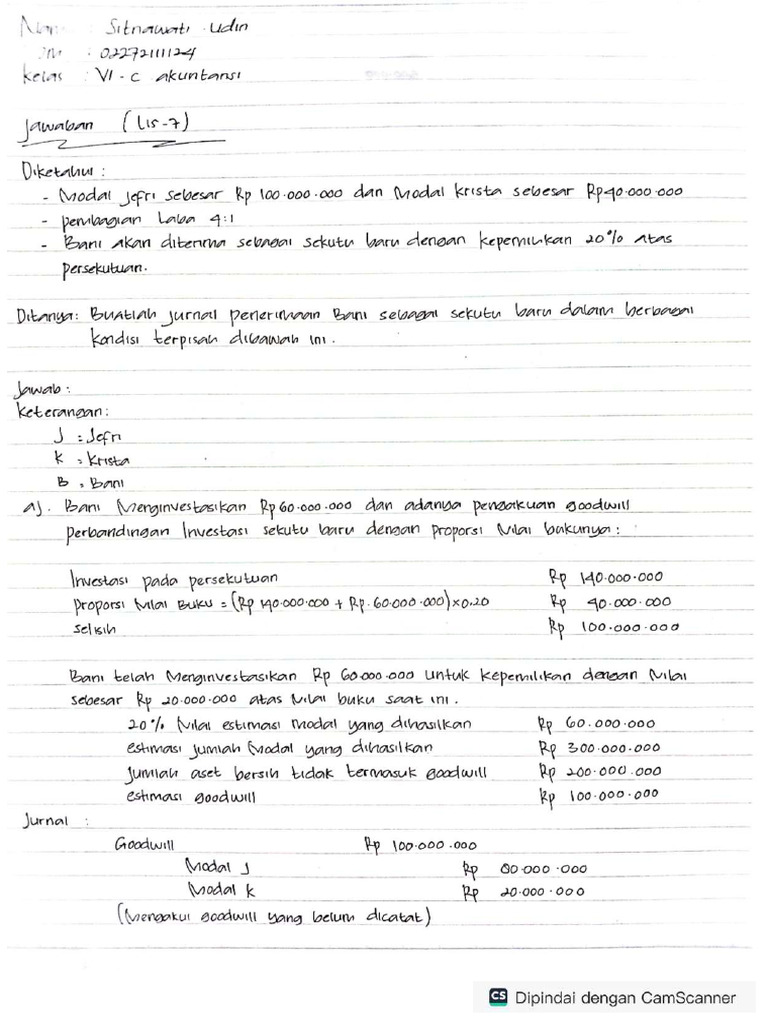 Nama : Sitnawati Udin
NIM : 02272111124
Kelas : VI - C akuntansi
Jawaban (L15-7)
Diketahui :
- Modal Jefri sebesar Rp 100.000.000 dan Modal Krista sebesar Rp40.000.000
- pembagian Laba 4:1
- Bani akan diterima sebagai sekutu baru dengan kepemilikan 20% atas
persekutuan.
Ditanya: Buatlah jurnal penerimaan Bani sebagai sekutu baru dalam berbagai
kondisi terpisah dibawah ini.
Jawab :
Keterangan :
J : Jefri
K : Krista
B : Bani
a). Bani Menginvestasikan Rp 60.000.000 dan adanya pengakuan goodwill
perbandingan Investasi sekutu baru dengan proporsi Nilai bukunya :
Investasi pada persekutuan Rp 140.000.000
proporsi Nilai Buku = (Rp 140.000.000 + Rp. 60.000.000) x 0,20 Rp 40.000.000
selisih Rp 100.000.000
Bani telah Menginvestasikan Rp 60.000.000 untuk kepemilikan dengan Nilai
sebesar Rp 20.000.000 atas Nilai buku saat ini.
20% Nilai estimasi modal yang dihasilkan Rp 60.000.000
estimasi jumlah Modal yang dihasilkan Rp 300.000.000
Jumlah aset bersih tidak termasuk goodwill Rp 200.000.000
estimasi goodwill Rp 100.000.000
Jurnal :
Goodwill Rp 100.000.000
Modal J Rp 80.000.000
Modal K Rp 20.000.000
(Mengakui goodwill yang belum dicatat)
CS Dipindai dengan CamScanner